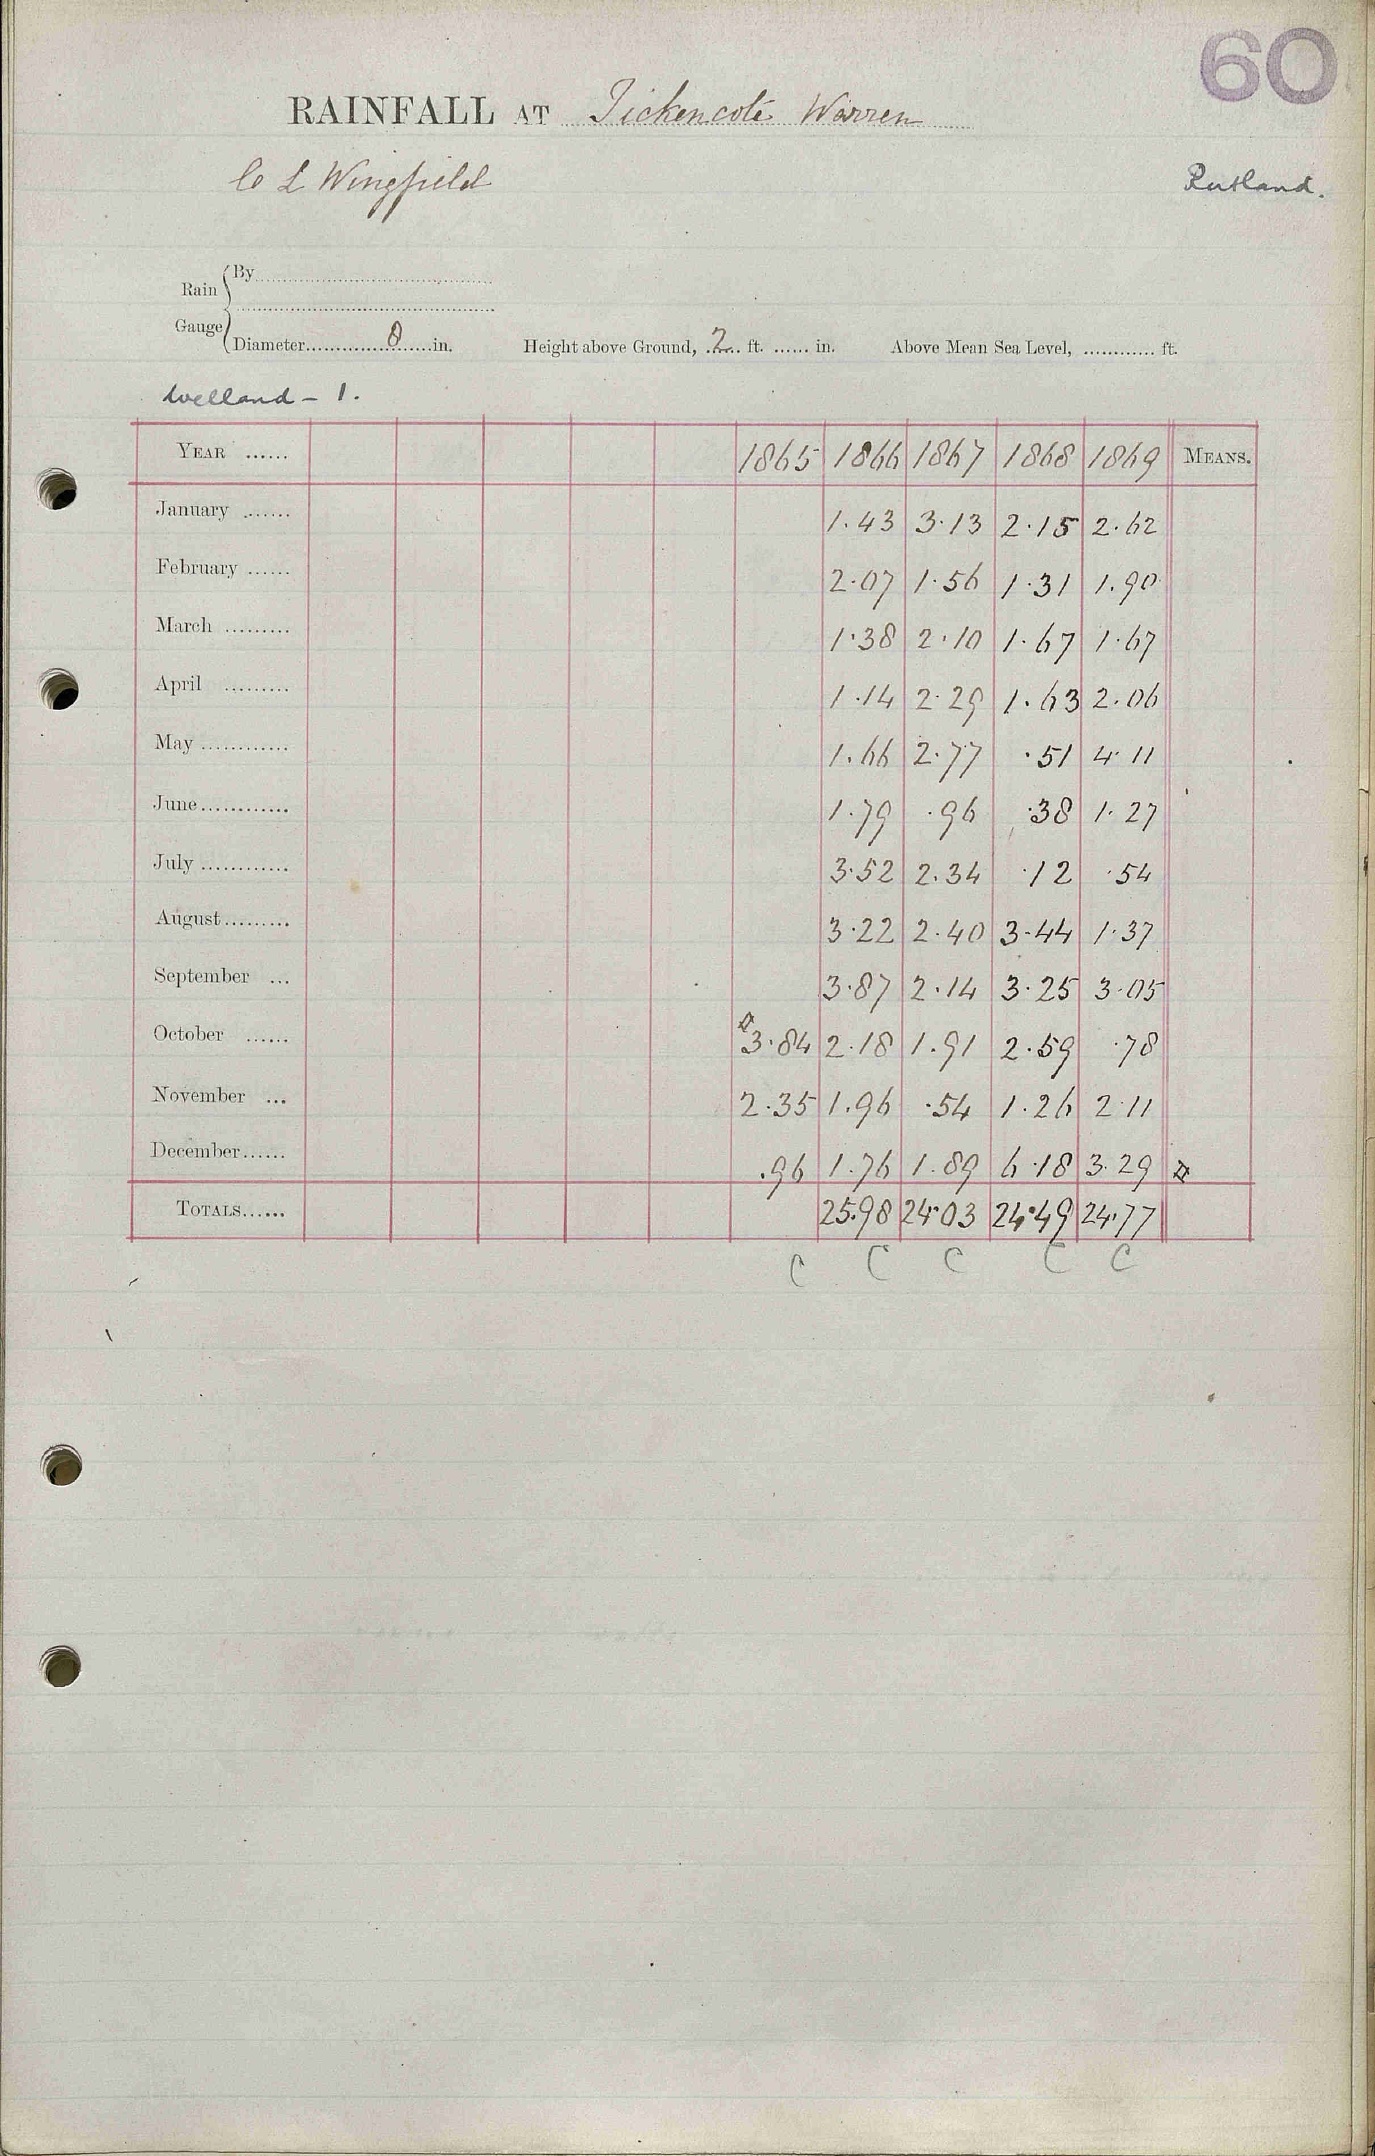 60
RAINFALL AT Tickencote Warren
C L Wingfield
Rutland.
Rain Gauge { By
Diameter 8 in. Height above Ground, 2 ft. in. Above Mean Sea Level, ft.
Welland - 1.
YEAR 1865 1866 1867 1868 1869 MEANS.
January 1.43 3.13 2.15 2.62
February 2.07 1.56 1.31 1.90
March 1.38 2.10 1.67 1.67
April 1.14 2.29 1.63 2.06
May 1.66 2.77 .51 4.11
June 1.79 .96 .38 1.27
July 3.52 2.34 .12 .54
August 3.22 2.40 3.44 1.37
September 3.87 2.14 3.25 3.05
October 3.84 2.18 1.91 2.59 .78
November 2.35 1.96 .54 1.26 2.11
December .96 1.76 1.89 6.18 3.29
TOTALS 25.98 24.03 24.49 24.77
C C C C C